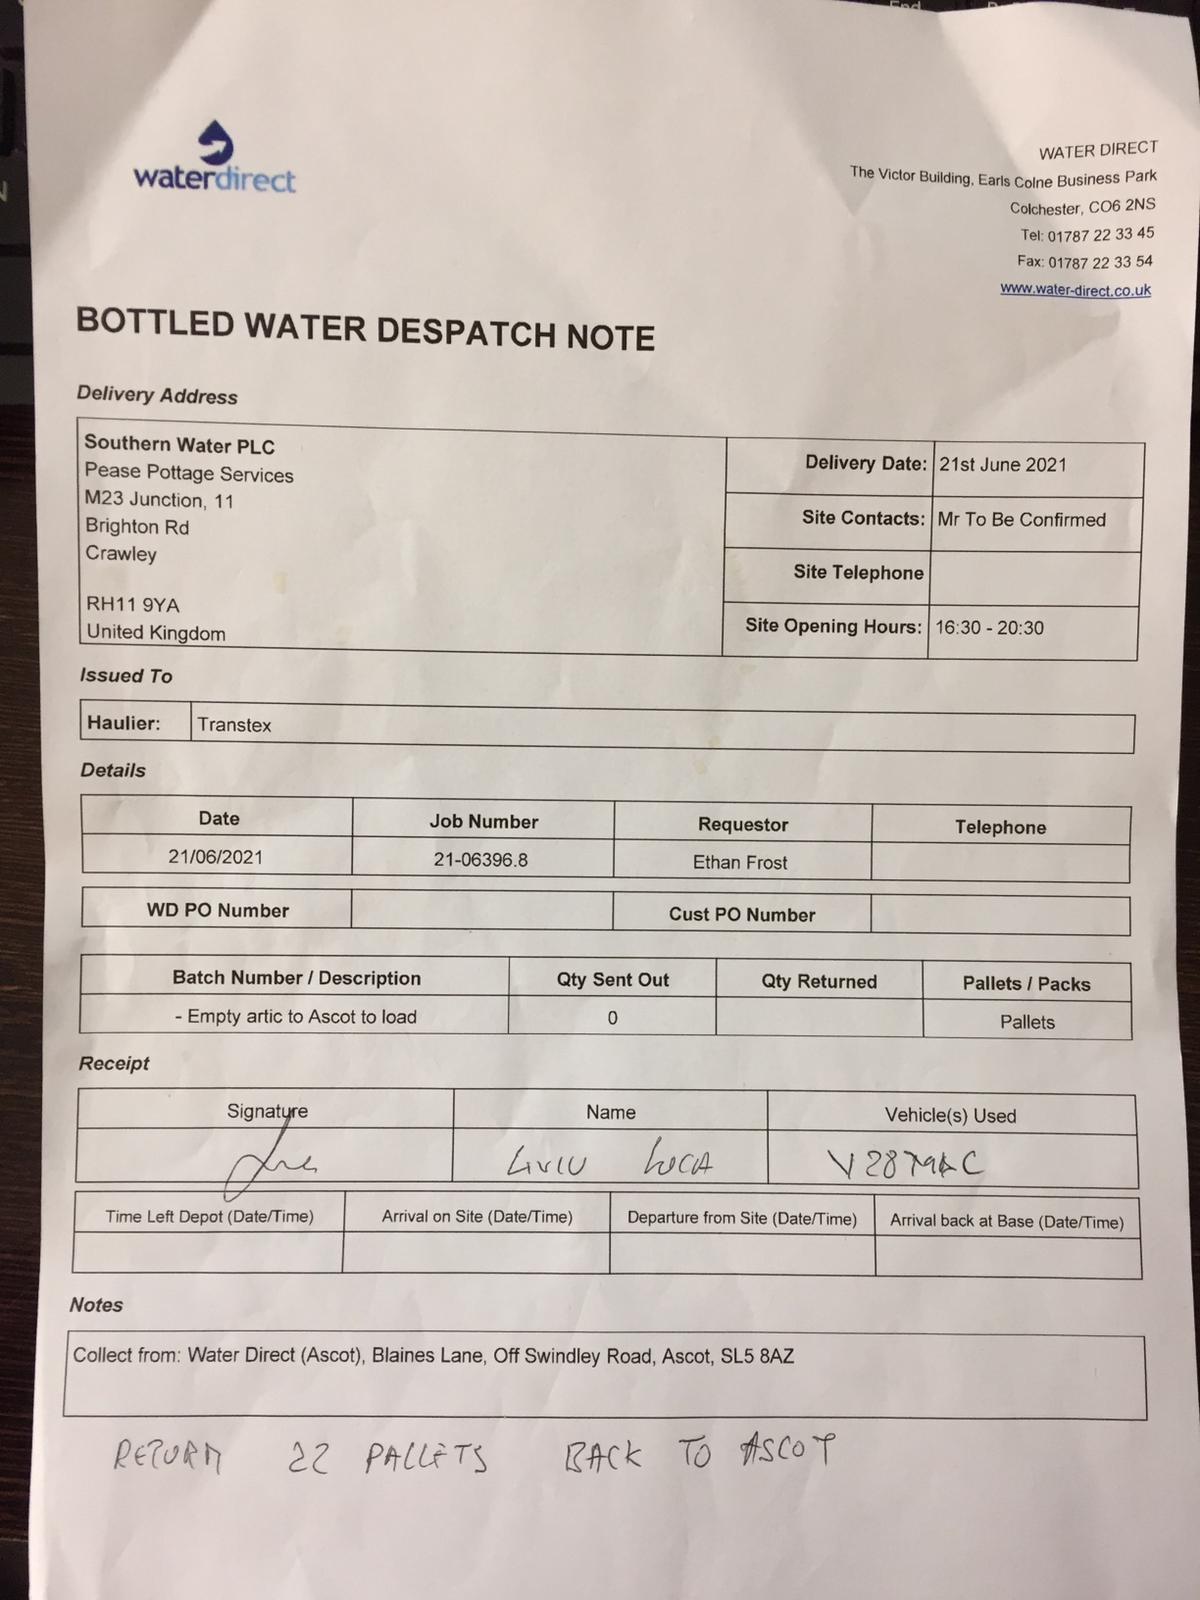 waterdirect
WATER DIRECT
The Victor Building, Earls Colne Business Park
Colchester, CO6 2NS
Tel: 01787 22 33 45
Fax: 01787 22 33 54
www.water-direct.co.uk
BOTTLED WATER DESPATCH NOTE
Delivery Address
Southern Water PLC
Pease Pottage Services
M23 Junction, 11
Brighton Rd
Crawley
RH11 9YA
United Kingdom
Delivery Date: 21st June 2021
Site Contacts: Mr To Be Confirmed
Site Telephone
Site Opening Hours: 16:30 - 20:30
Issued To
Haulier: Transtex
Details
Date Job Number Requestor Telephone
21/06/2021 21-06396.8 Ethan Frost
WD PO Number Cust PO Number
Batch Number / Description Qty Sent Out Qty Returned Pallets / Packs
- Empty artic to Ascot to load 0 Pallets
Receipt
Signature Name Vehicle(s) Used
LIVIU LUCA
Time Left Depot (Date/Time) Arrival on Site (Date/Time) Departure from Site (Date/Time) Arrival back at Base (Date/Time)
Notes
Collect from: Water Direct (Ascot), Blaines Lane, Off Swindley Road, Ascot, SL5 8AZ
RETURN 22 PALLETS BACK TO ASCOT